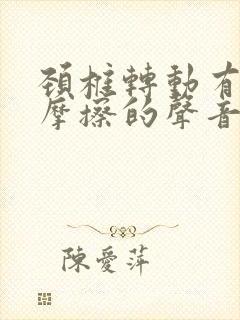 頸椎轉動有
摩擦的聲音
陳愛萍